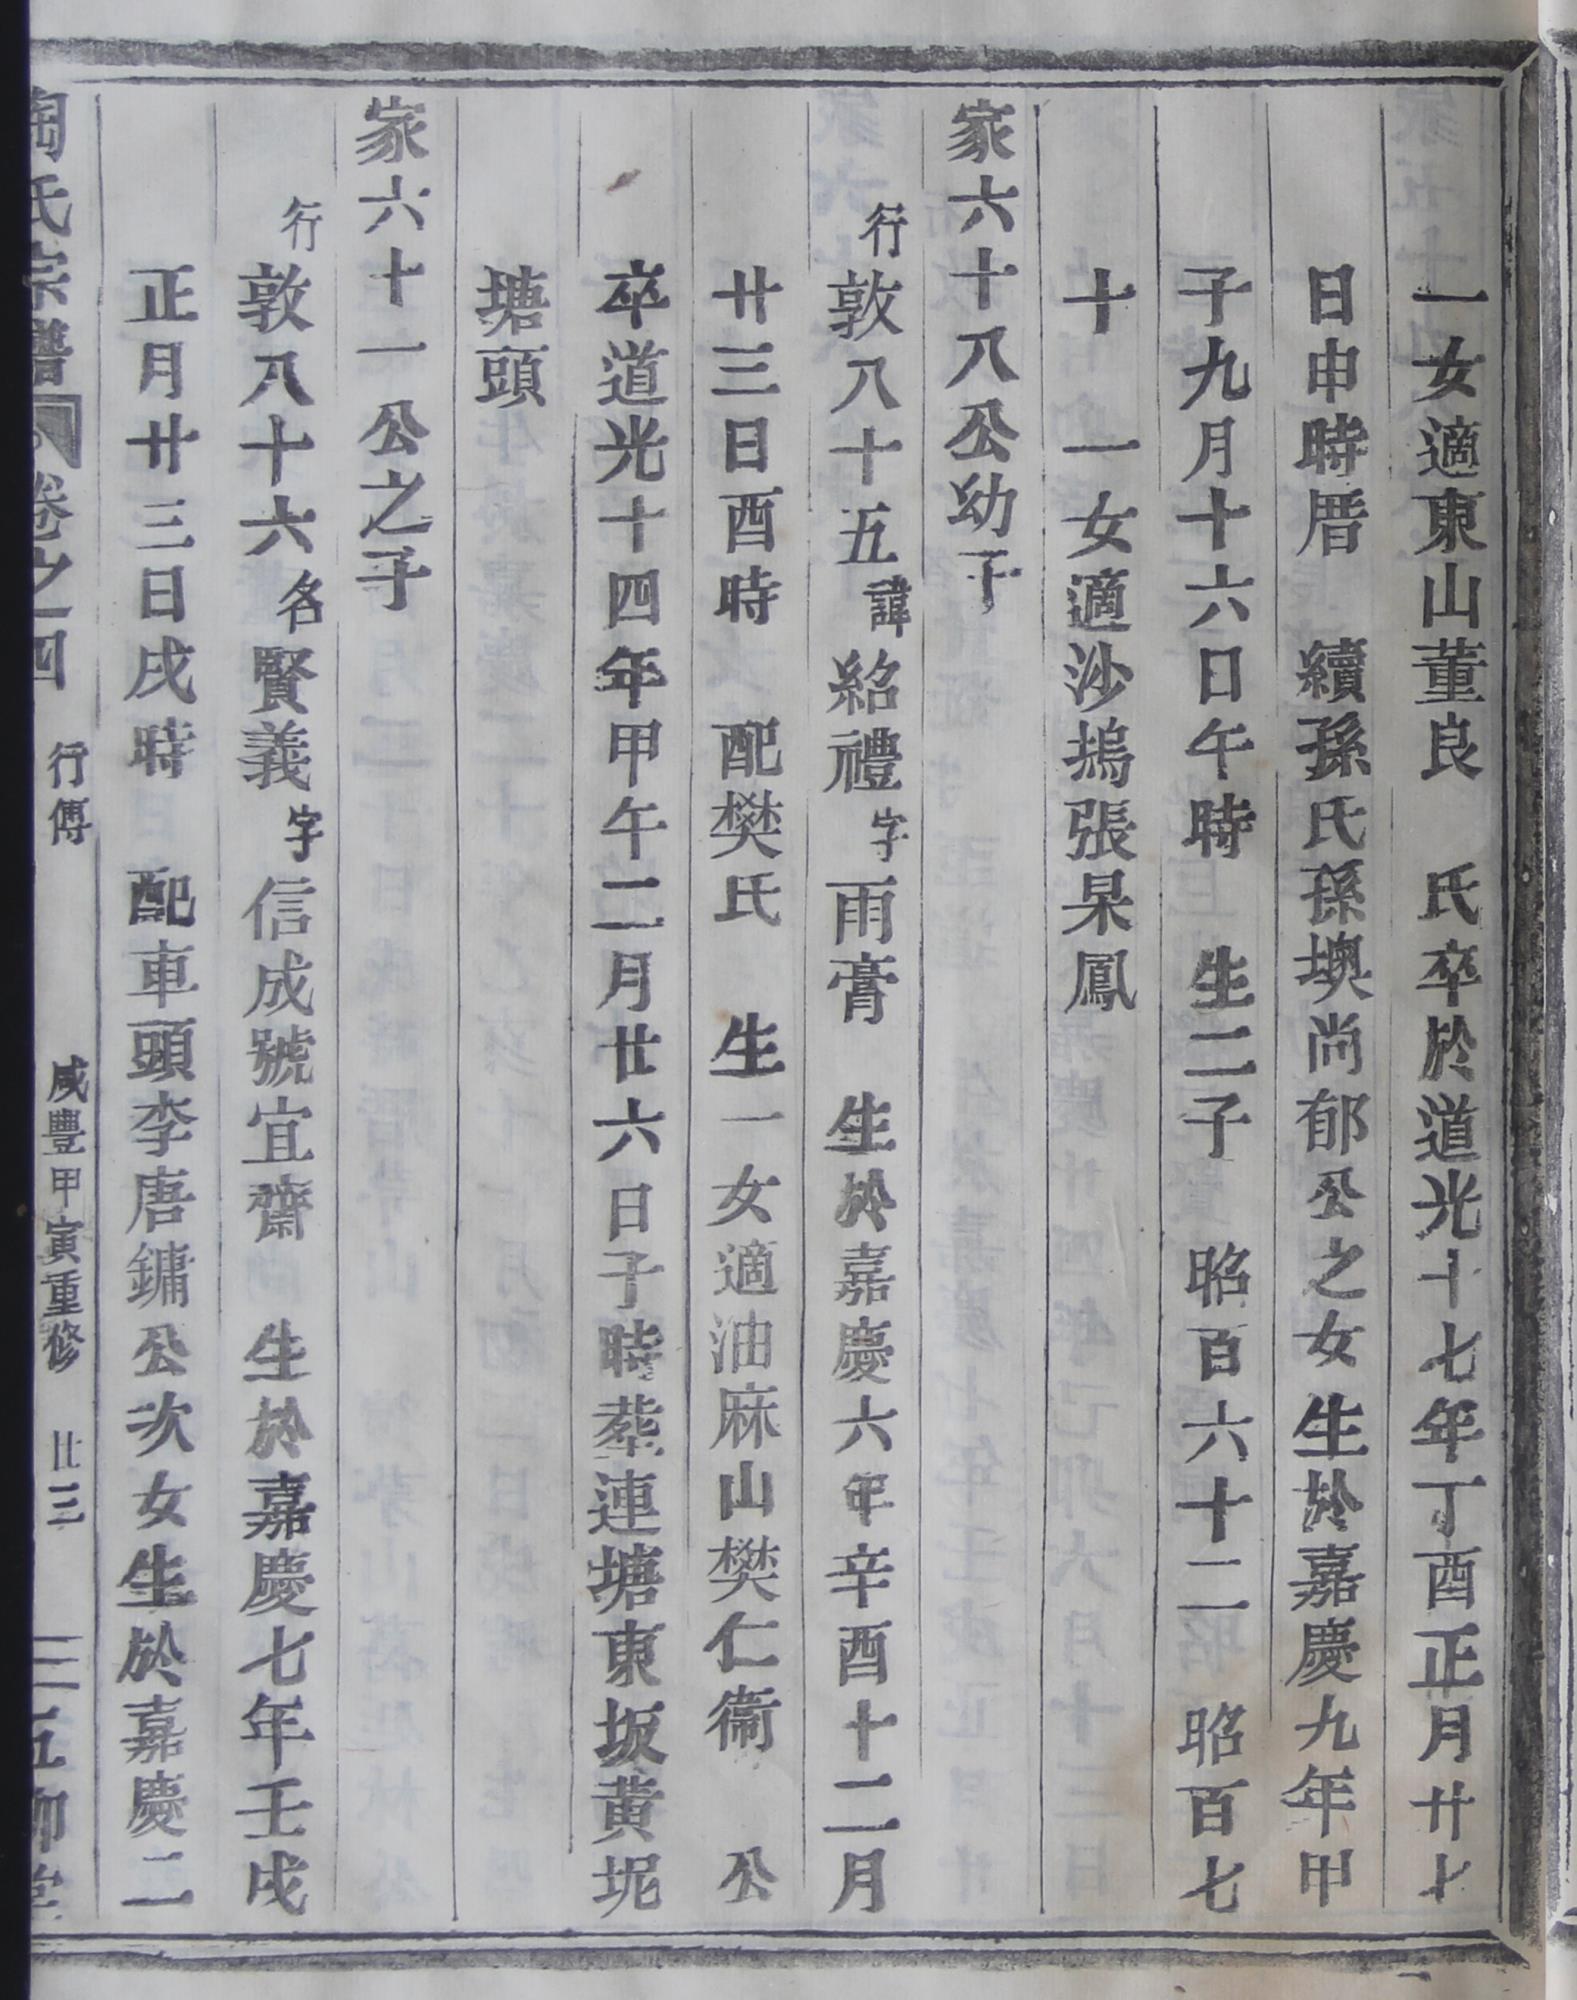 一女適東山董良　氏卒於道光十七年丁酉正月廿七
日申時厝　續孫氏孫墺尚郁公之女生於嘉慶九年甲
子九月十六日午時　生二子　昭百六十二　昭百七
十　一女適沙塢張杲鳳
家六十八公幼子
行敦八十五諱紹禮字雨膏　生於嘉慶六年辛酉十二月
廿三日酉時　配樊氏　生一女適油麻山樊仁衞　公
卒道光十四年甲午二月廿六日子時塟連塘東坂黄坭
塘頭
家六十一公之子
行敦八十六名賢義字信成號宜齋　生於嘉慶七年壬戌
正月廿三日戌時　配車頭李唐鏞公次女生於嘉慶二
陶氏宗譜　卷之四　行傳　咸豐甲寅重修　廿三　五柳堂